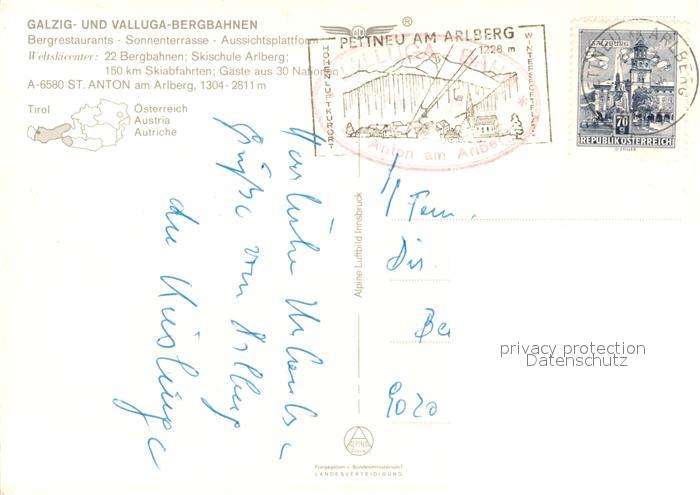 GALZIG- UND VALLUGA-BERGBAHNEN
Bergrestaurants - Sonnenterrasse - Aussichtsplattform
Weltskicenter: 22 Bergbahnen; Skischule Arlberg;
150 km Skiabfahrten; Gäste aus 30 Nationen
A-6580 ST. ANTON am Arlberg, 1304-2811 m
Tirol
Österreich
Austria
Autriche
®
PETTNEU AM ARLBERG
1228 m
HÖHENLUFTKURORT
Anton am Arlberg
SALZBURG
70 g
REPUBLIK ÖSTERREICH
Herzliche Urlaubs-
grüße vom Arlberg
die
Alpine Luftbild Innsbruck
Fam.
Dir.
Be
privacy protection
Datenschutz
ALPINE
Freigegeben v. Bundesministerium f.
LANDESVERTEIDIGUNG